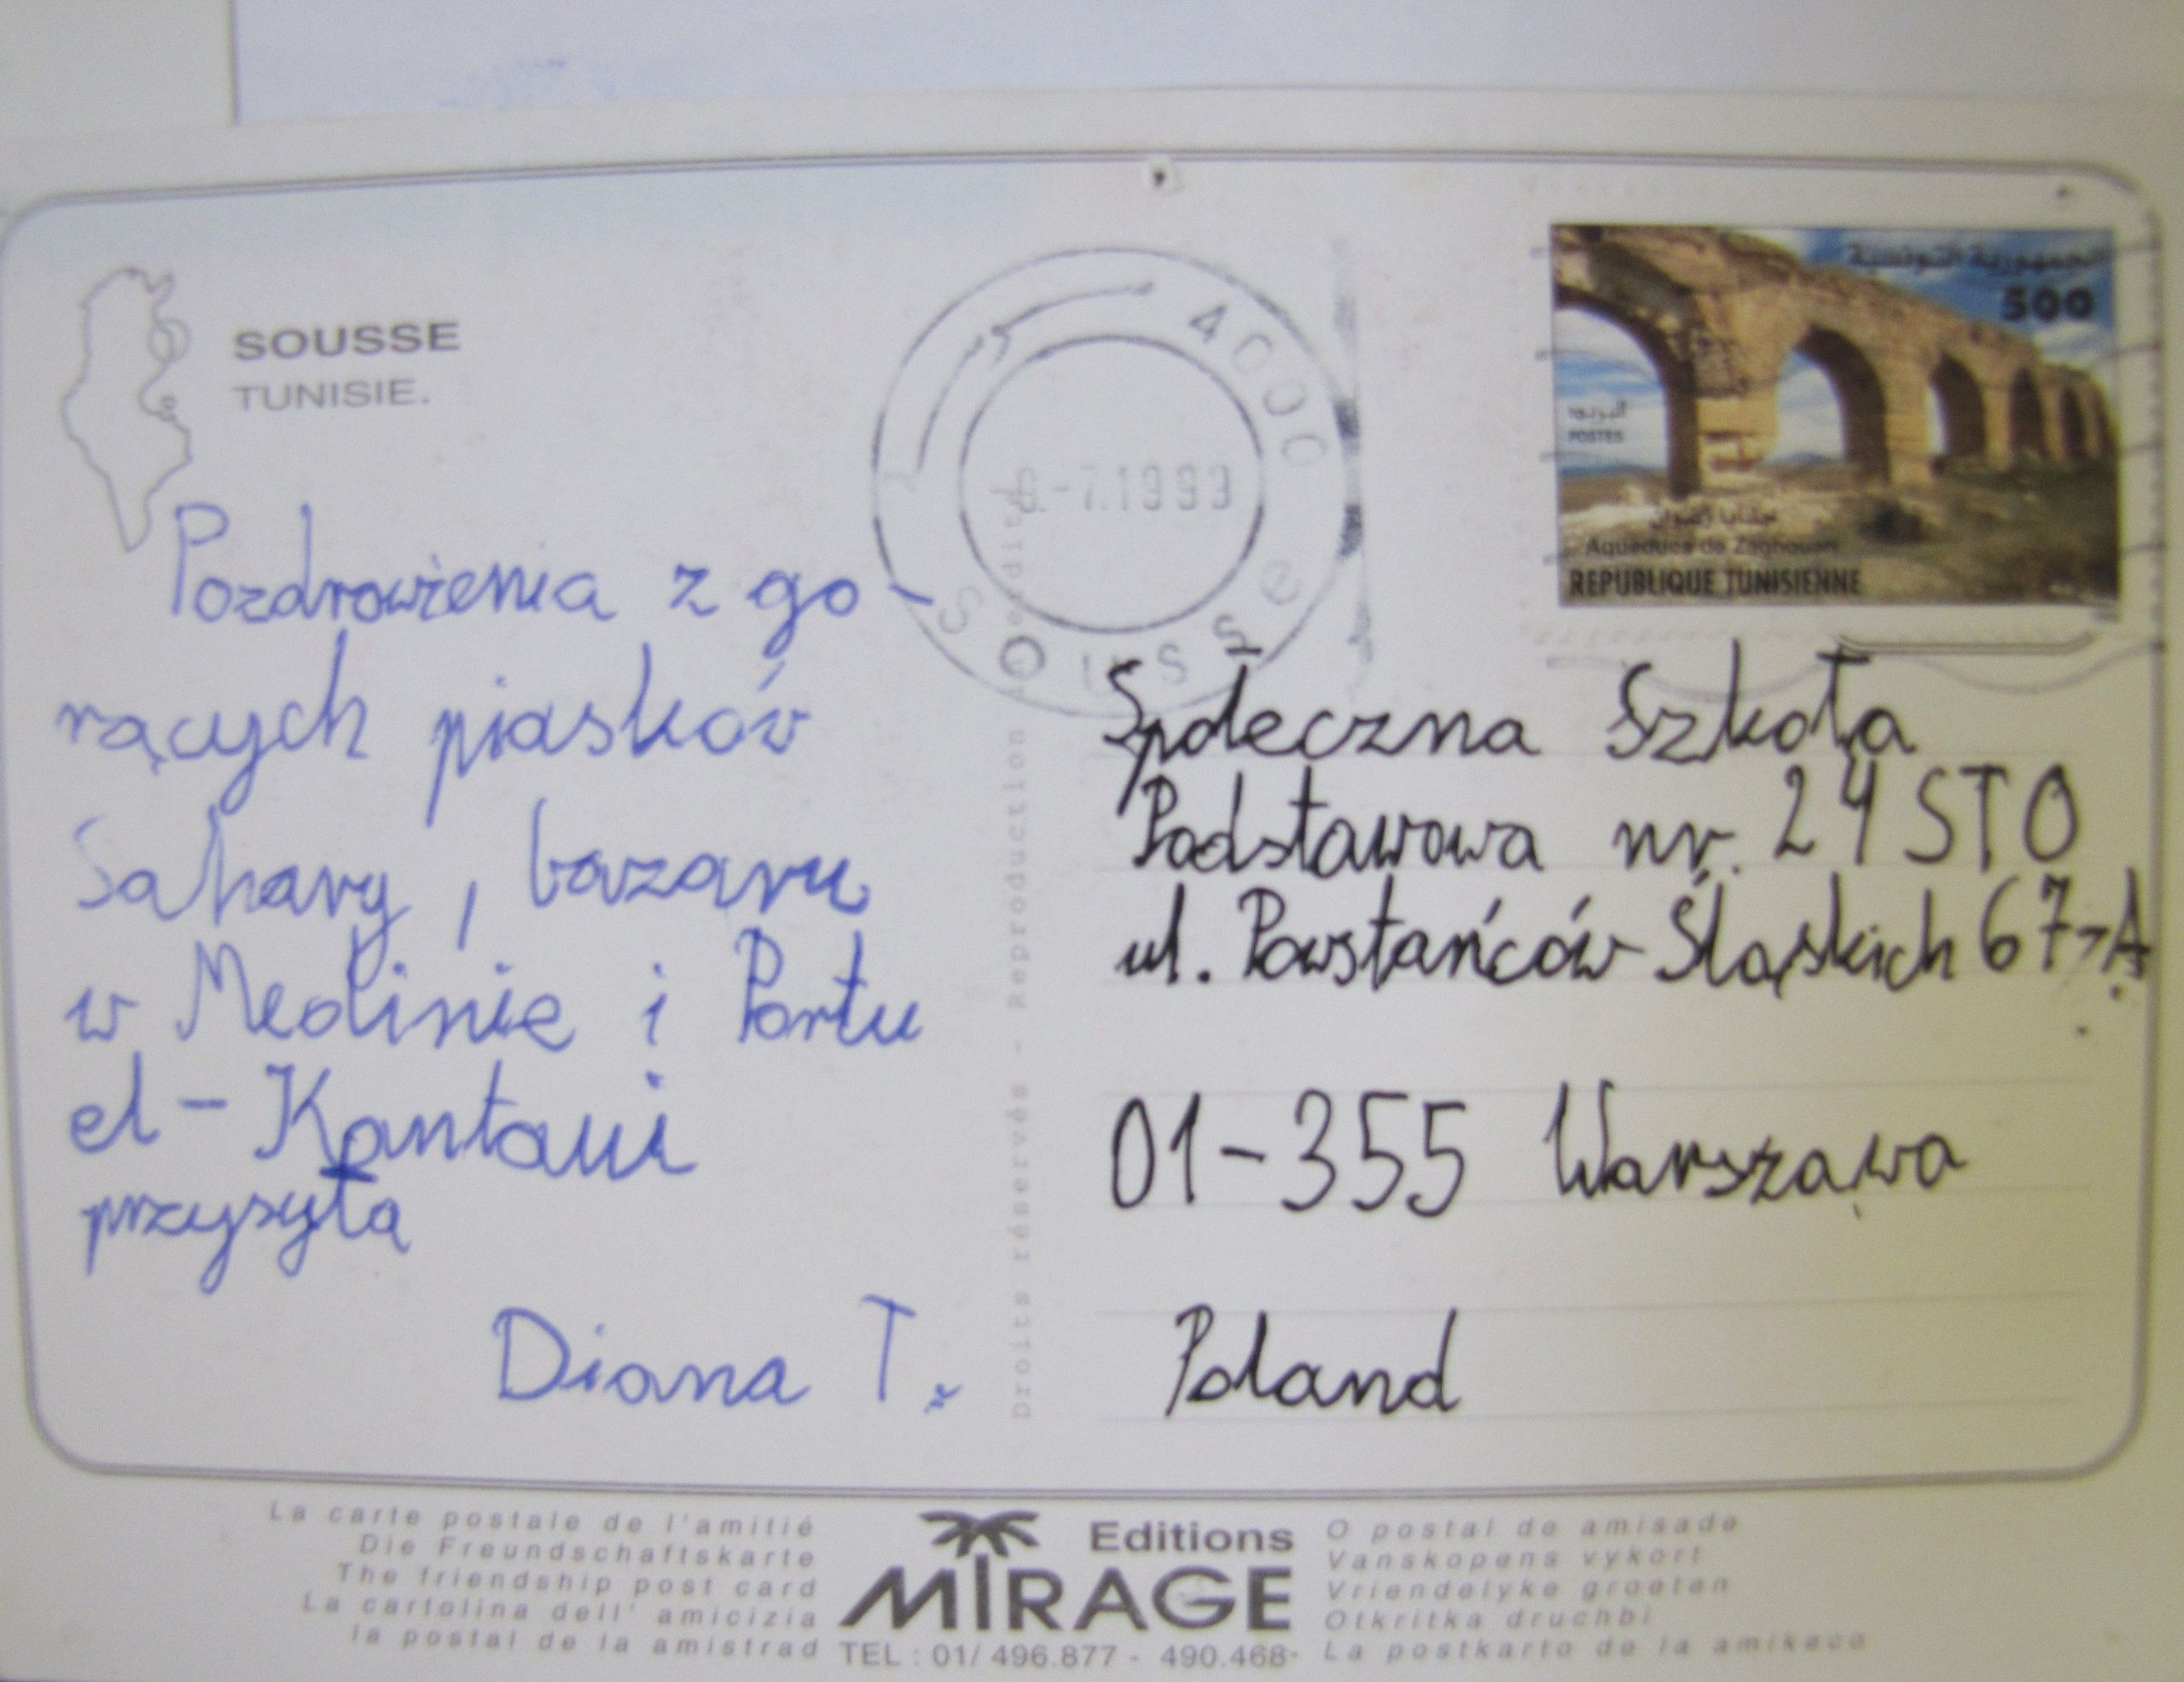 SOUSSE
TUNISIE.
Pozdrowienia z go-
rących piasków
Sahary, bazaru
w Medinie i Portu
el-Kantaui
przysyła
Diana T.
4000
-7.1999
Sousse
الجمهورية التونسية
500
البريد
POSTES
Aqueduc de Zaghouan
REPUBLIQUE TUNISIENNE
Społeczna Szkoła
Podstawowa nr. 24 STO
ul. Powstańców Śląskich 67-A
01-355 Warszawa
Poland
Droits réservés - Reproduction
La carte postale de l'amitié
Die Freundschaftskarte
The friendship post card
La cartolina dell' amicizia
la postal de la amistrad
Editions
MIRAGE
TEL : 01/ 496.877 - 490.468
O postal de amisade
Vanskopens vykort
Vriendelyke groeten
Otkritka druchbi
La postkarto de la amikeco